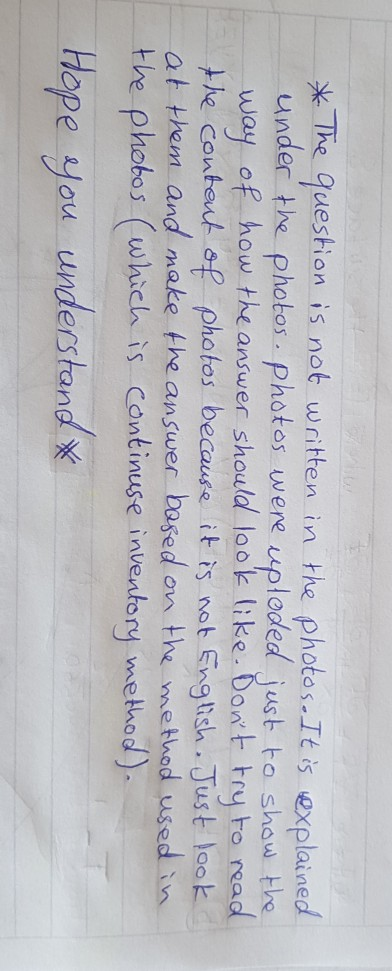 * The question is not written in the photos. It is explained
under the photos. photos were uploded just to show the
way of how the answer should look like. Don't try to read
the content of photos because it is not English. Just look
at them and make the answer based on the method used in
the photos (which is continuse inventory method).
Hope you understand *